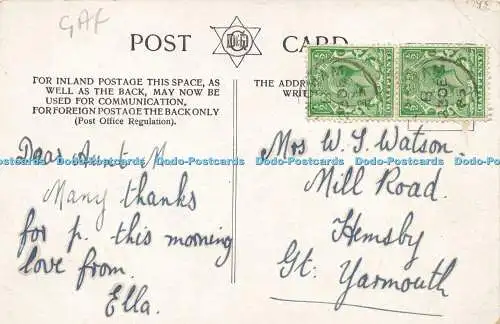 GAF
POST CARD
FOR INLAND POSTAGE THIS SPACE, AS
WELL AS THE BACK, MAY NOW BE
USED FOR COMMUNICATION,
FOR FOREIGN POSTAGE THE BACK ONLY
(Post Office Regulation).
THE ADDRE
WRIT
Dear Aunt M
Many thanks
for p. this morning
love from.
Ella.
Mrs W. S. Watson.
Mill Road.
Hemsby
Gt. Yarmouth
Dodo-Postcards Dodo-Postcards Dodo-Postcards Dodo-Postcards